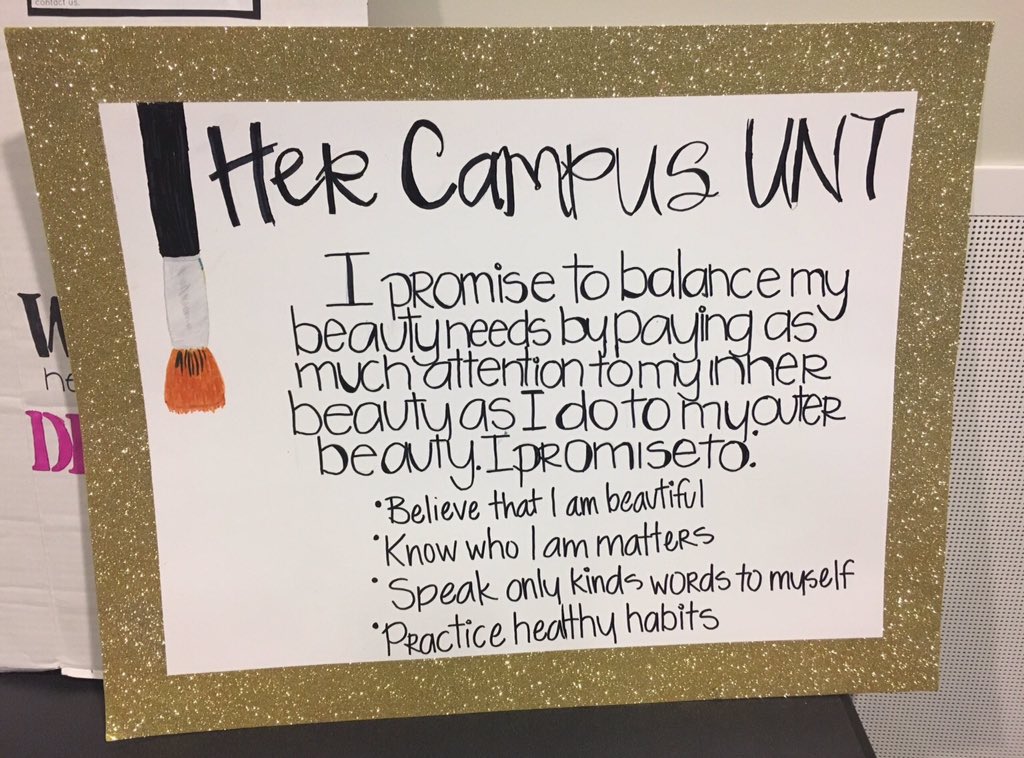 contact us.
Her Campus UNT
I promise to balance my
beauty needs by paying as
much attention to my inner
beauty as I do to my outer
beauty. I promise to.
•Believe that I am beautiful
•Know who I am matters
•Speak only kinds words to myself
•Practice healthy habits